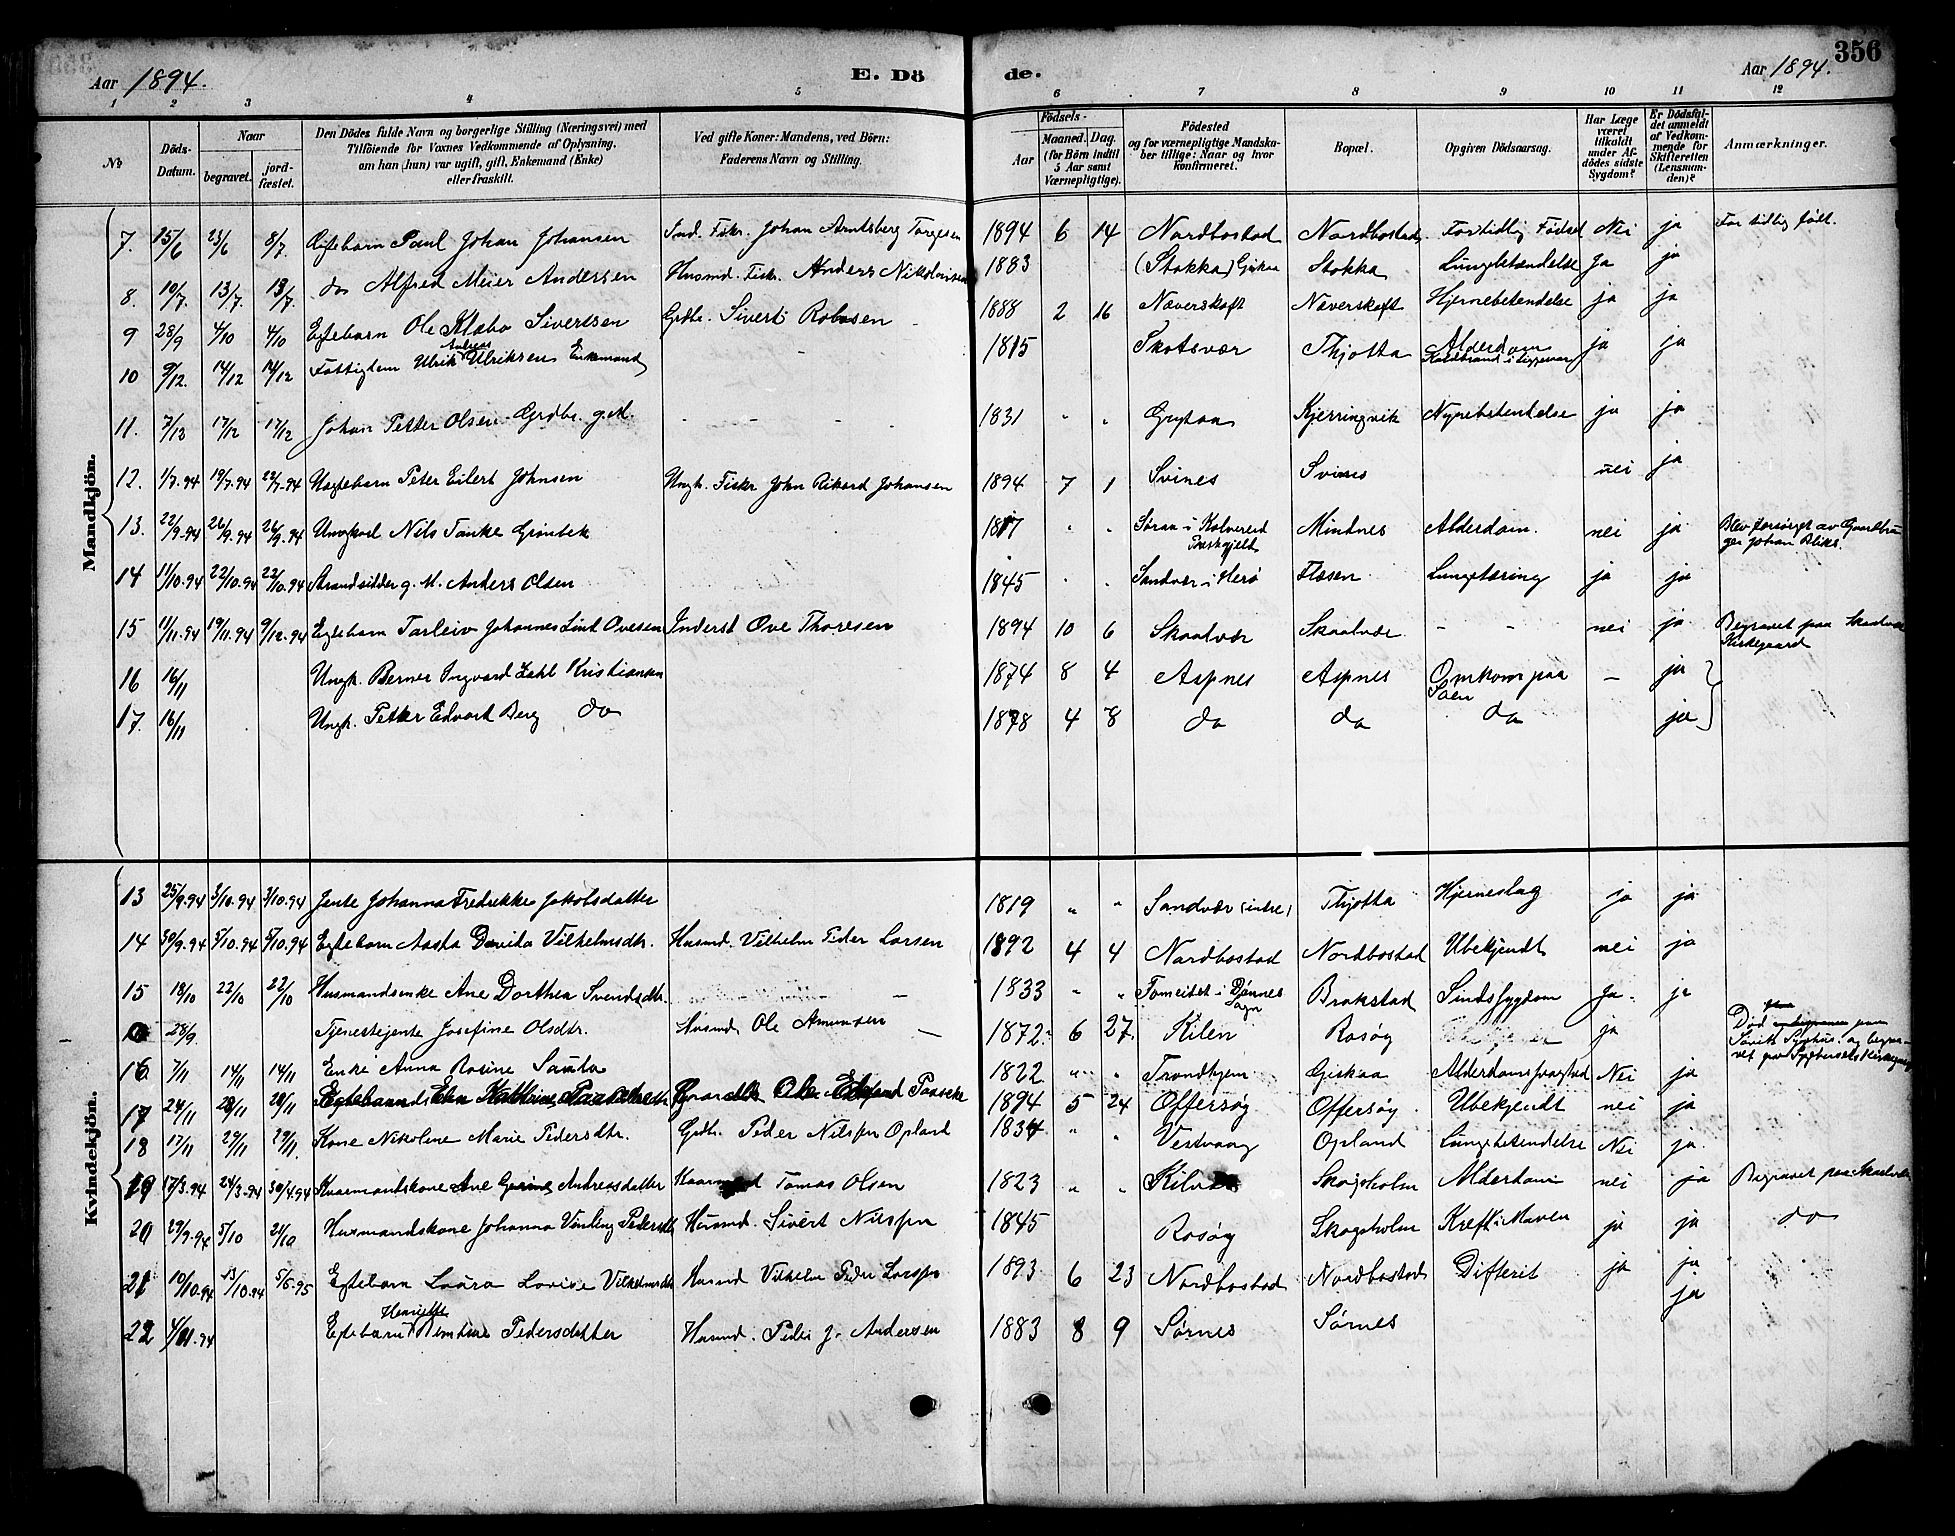 356
Aar 1894. E. Dö de. Aar 1894.
1 2 3 4 5 6 7 8 9 10 11 12
No
Döds-Datum.
Naar
begravet.
jord-fæstet.
Den Dödes fulde Navn og borgerlige Stilling (Næringsvei) med
Tilföiende for Voxnes Vedkommende af Oplysning,
om han (hun) var ugift, gift, Enkemand (Enke)
eller fraskilt.
Ved gifte Koner: Mandens, ved Börn:
Faderens Navn og Stilling.
Födsels-
Aar
Maaned. Dag.
(for Börn indtil
5 Aar samt
Værnepligtige).
Födested
og for værnepligtige Mandska-
ber tillige: Naar og hvor
konfirmeret.
Bopæl.
Opgiven Dödsaarsag.
Har Læge
været
tilkaldt
under Af-
dödes sidste
Sygdom?
Er Dödsfal-
det anmeldt
af Vedkom-
mende for
Skifteretten
(Lensman-
den)?
Anmærkninger.
Mandkjön.
7. 15/6 23/6 8/7. Egtebarn Paul Johan Johansen Ind. Fiskr. Johan Arntsberg Torgesen 1894 6 14 Nordbostad Nordbostad Fortidlig Födsel Nei ja For tidlig født.
8. 10/7. 13/7. 13/7. do Alfred Meier Andersen Husmd. Fiskr. Anders Nikolaisen 1883 (Stokka) Giskaa Stokka Lungebetændelse Ja ja
9 28/9 4/10 4/10 Egtebarn Ole Klæbo Sivertsen Grdbr. Sivert Robsen 1888 2 16 Næverskoft Næverskoft Hjernebetendelse ja ja
10 9/12. 14/12 14/12 Fattiglem Ulrik Andreas Ulriksen Enkemand - - 1815 Skotsvær Thjotta Alderdom ja ja
11. 7/12 17/12 17/12 Johan Petter Olsen Grdbr. g.M. - - - 1831 " " Grytaa Kjerringvik Nyrebetendelse ja ja
12. 1/7.94 19/7.94 22/7.94 Uægtebarn Peter Eilert Johnsen Ungk. Fiskr John Rikard Johansen 1894 7 1 Svines Svines nei ja
13. 22/9.94 26/9.94 26/9.94 Ungkarl Nils Tanke Grønbek 1817 " " Søraa i Kolvereid Præstgjeld Mindnes Alderdom. nei ja Blev forsørget av Gaardbru-
ger Johan Bliks.
14 11/10.94 22/10.94 22/10.94 Strandsidder g. M. Anders Olsen 1845 " " Sandvær i Herø Flæsen Lungetæring ja ja
15 11/11.94 19/11.94 9/12.94 Egtebarn Tarleiv Johannes Lind Ovesen Inderst Ove Thoresen 1894 10 6 Skaalvær Skaalvær - - nei ja Begravet paa Skaalvær
Kirkegaard
16 16/11 Ungk. Berner Ingvard Zahl Kristiansen 1874 8 4 Aspnes Aspnes Omkom paa Søen - ja
17. 16/11 Ungk. Petter Edvart Berg do 1878 4 8 do do do ja
Kvindekjön.
13 25/9.94 3/10.94 3/10.94 Jente Johanna Fredrikke Jakobsdatter 1819 " " Sandvær (indre) Thjotta Hjerneslag ja ja
14 30/9.94 5/10.94 5/10.94 Egtebarn Aasta Davida Vilhelmsdtr. Husmd. Vilhelm Peder Larsen 1892 4 4 Nordbostad Nordbostad Ubekjendt nei ja
15 18/10 22/10 22/10 Husmandsenke Ane Dorthea Svendsdtr. - - 1833 " " Tomeidet i Dønnes Sogn Brakstad Sindssygdom Ja. ja
28/9. Tjenestejente Josefine Olsdtr. Husmd. Ole Amundsen - 1872 6 27. Kilen Rosøy ja Død paa
Søvik Sygehus, og begra-
vet paa
16 7/11 14/11 14/11 Enke Anna Rosine Sauta 1822 " " Trondhjem Giskaa Alderdomssvaghed Nei ja
17 24/11 28/11 28/11 Egtebarn 1894 5 24 Offersøy Offersøy Ubekjendt nei ja
18 17/11 29/11 29/11. Kone Nikoline Marie Pedersdtr. Grdbr. Peder Nilssen Opland 1834 " " Vestvaag Opland Lungebetendelse Nei ja
19 17/3.94 24/3.94 30/4.94 Husmandskone Ane Andreasdatter Tomas Olsen 1823 " " Skogsholm Alderdom nei ja Begravet paa Skaalvær
20 29/9.94 5/10 21/10 Husmandskone Johanna Pedersdtr Husmd. Sivert Nilssen 1845 Rosøy Skogsholm Kreft i Maven ja ja do
21 10/10.94 13/10.94 5/5.95 Egtebarn Laura Lovise Vilhelmsdtr Husmd Vilhelm Peder Larsen 1893 6 23 Nordbostad Nordbostad Difterit ja ja
22 4/11.94 Egtebarn Henriette Pedersdatter Husmd. Peder J. Andersen 1883 8 9 Sørnes Sørnes ja